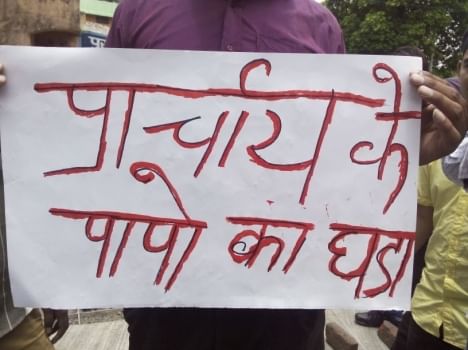 प्राचार्य के
पापो का घडा